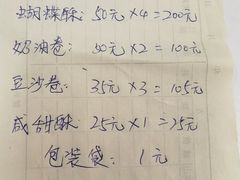 蝴蝶酥：50元×4=200元
奶油卷：50元×2=100元
豆沙卷：35元×3=105元
咸甜酥：25元×1=25元
包装袋：1元